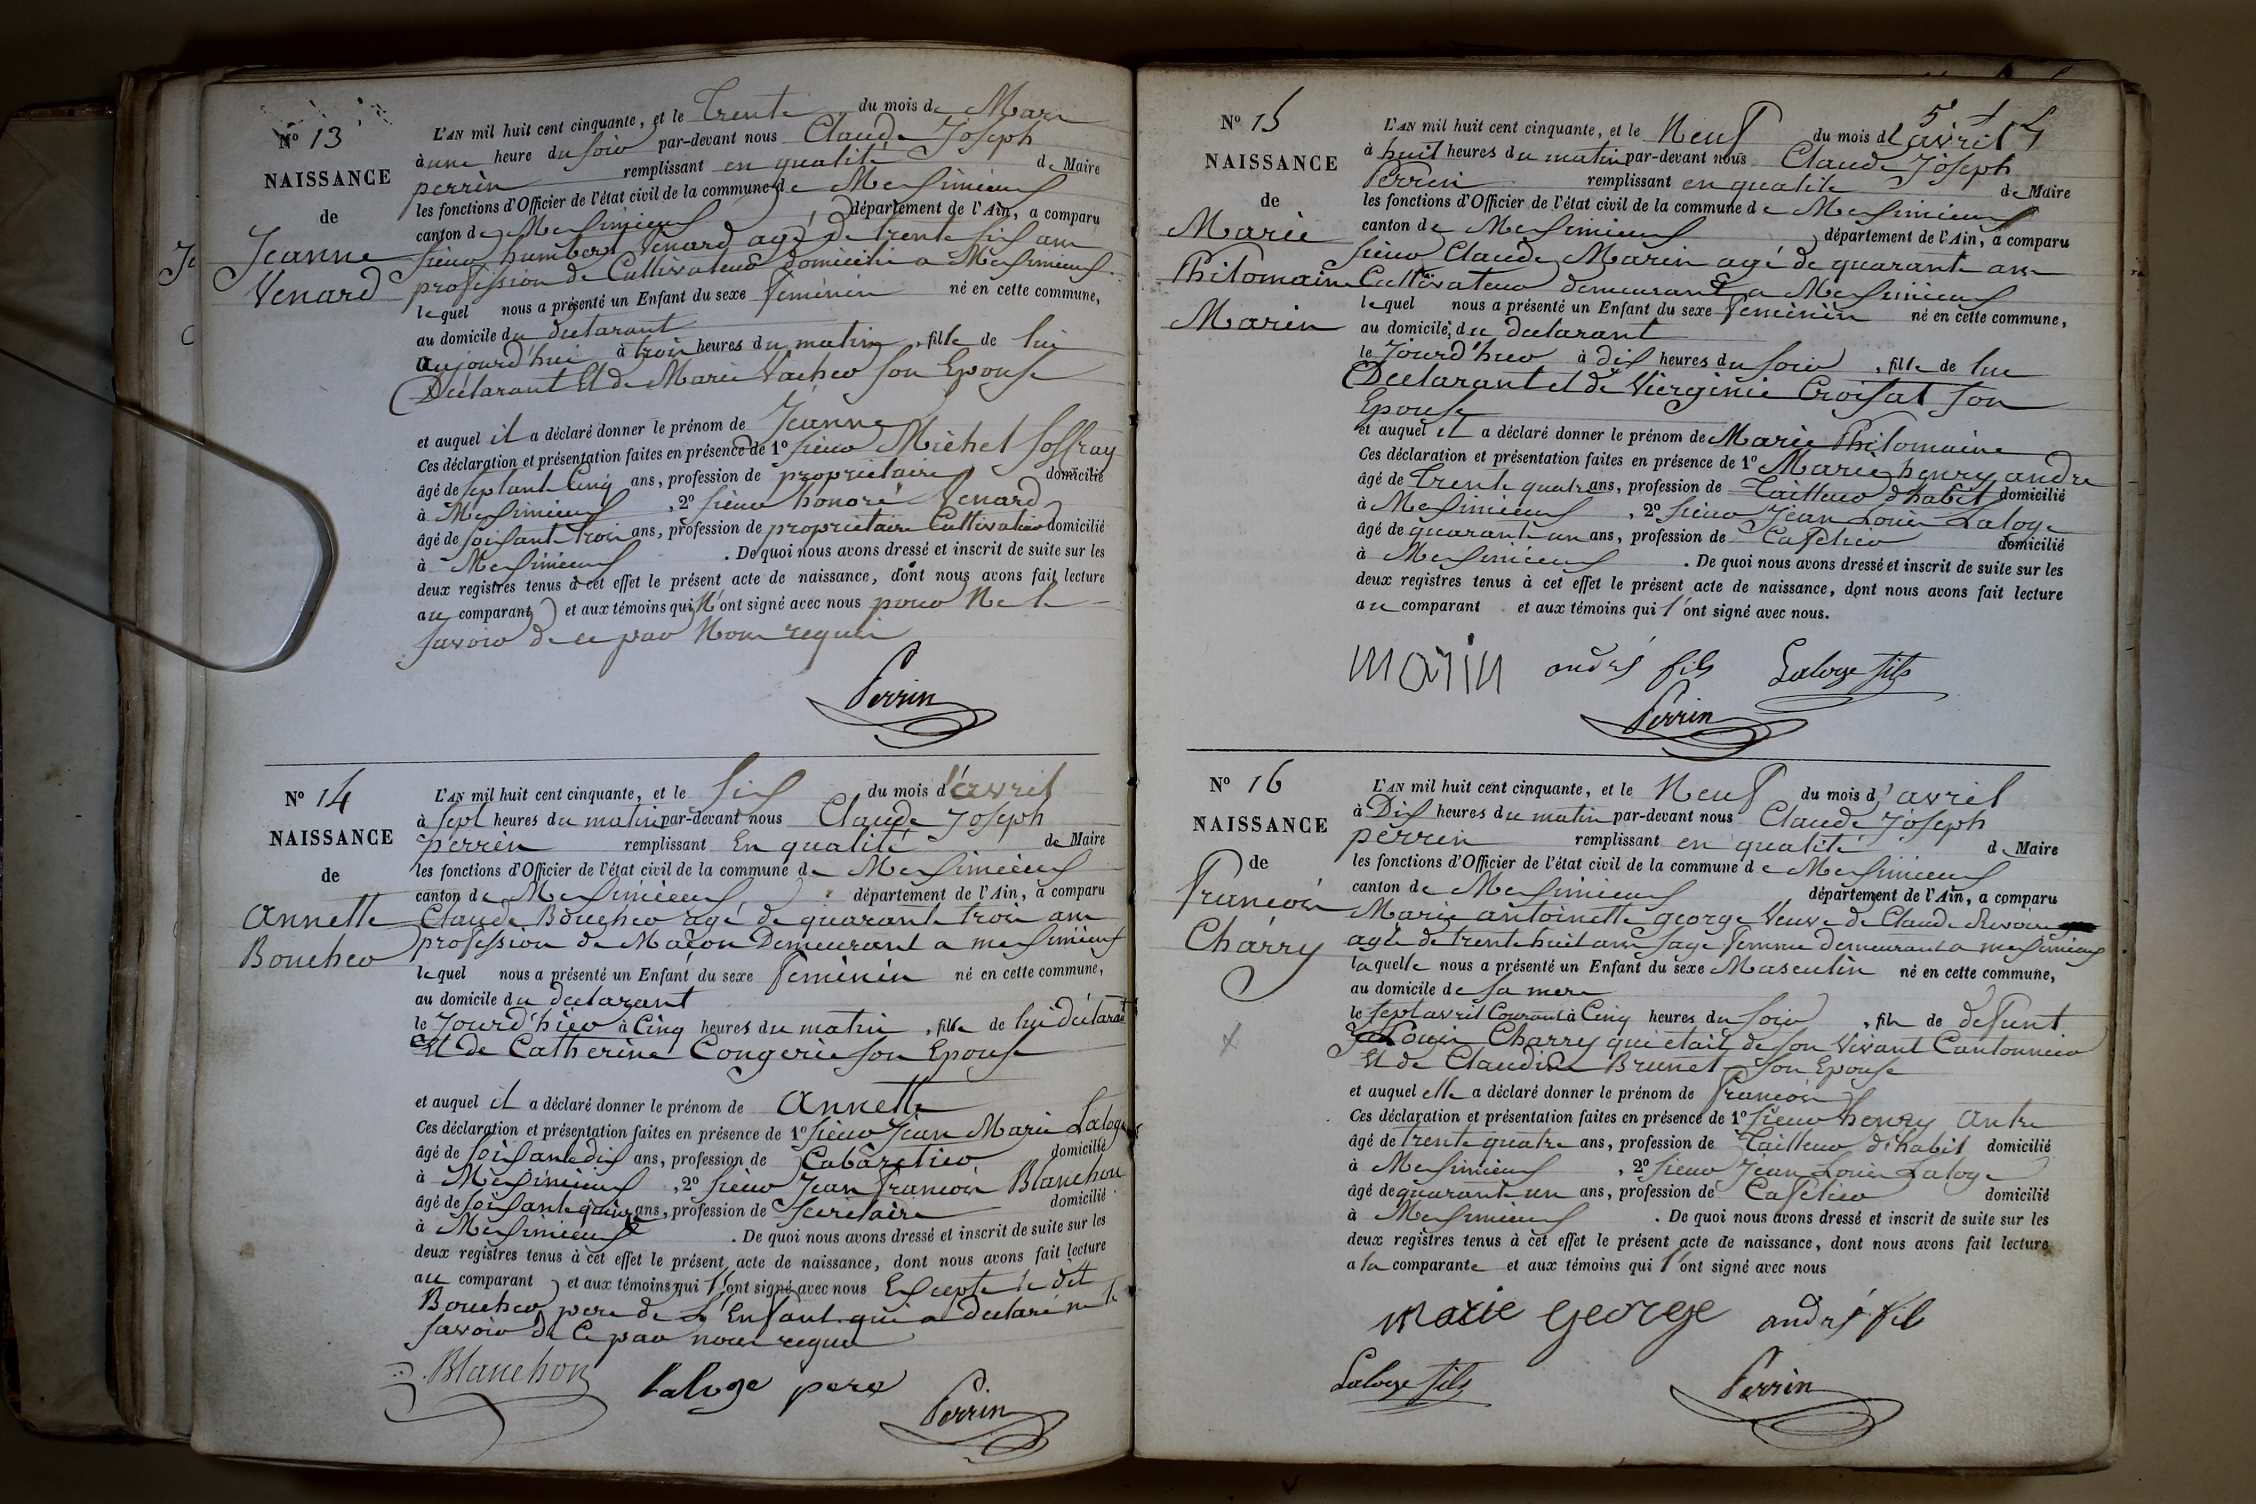 Nº 13
NAISSANCE
de
Jeanne
Venard
L'AN mil huit cent cinquante, et le Trente du mois de Mars
à une heure du soir par-devant nous Claude Joseph
perrin remplissant en qualité de Maire
les fonctions d'Officier de l'état civil de la commune de Meximieux
canton de Meximieux département de l'Ain, a comparu
sieur humbert Venard agé de trente six ans
profession de Cultivateur domicilié a Meximieux
lequel nous a présenté un Enfant du sexe féminin né en cette commune,
au domicile du déclarant
aujourd'hui à trois heures du matin, fille de lui
Déclarant Et de Marie Vacher son Epouse
et auquel il a déclaré donner le prénom de Jeanne
Ces déclaration et présentation faites en présence de 1º sieur Michel Soffray
âgé de septante Cinq ans, profession de propriétaire domicilié
à Meximieux, 2º sieur honoré Venard
âgé de soixante trois ans, profession de propriétaire Cultivateur domicilié
à Meximieux. De quoi nous avons dressé et inscrit de suite sur les
deux registres tenus à cet effet le présent acte de naissance, dont nous avons fait lecture
au comparant et aux témoins qui N'ont signé avec nous pour Ne le
savoir de ce par Nous requis
Perrin
Nº 14
NAISSANCE
de
Annette
Boucher
L'AN mil huit cent cinquante, et le six du mois d'avril
à sept heures du matin par-devant nous Claude Joseph
perrin remplissant En qualité de Maire
les fonctions d'Officier de l'état civil de la commune de Meximieux
canton de Meximieux département de l'Ain, a comparu
Claude Boucher agé de quarante trois ans
profession de Maçon Demeurant a meximieux
lequel nous a présenté un Enfant du sexe féminin né en cette commune,
au domicile du déclarant
le Jourd'hier à Cinq heures du matin, fille de lui déclarant
Et de Catherine Congerie son Epouse
et auquel il a déclaré donner le prénom de Annette
Ces déclaration et présentation faites en présence de 1º sieur Jean Marie Laloge
âgé de soixante dix ans, profession de Cabaretier domicilié
à Meximieux, 2º sieur Jean francois Blanchon
âgé de soixante quinze ans, profession de Secrétaire domicilié
à Meximieux. De quoi nous avons dressé et inscrit de suite sur les
deux registres tenus à cet effet le présent acte de naissance, dont nous avons fait lecture
au comparant et aux témoins qui l'ont signé avec nous Excepté le dit
Boucher pere de L'Enfant qui a déclaré ne le
savoir de Ce par nous requis
Blanchon Laloge pere Perrin
Nº 15
NAISSANCE
de
Marie
Philomaine
Marin
L'AN mil huit cent cinquante, et le Neuf du mois d'avril
à huit heures du matin par-devant nous Claude Joseph
Perrin remplissant en qualité de Maire
les fonctions d'Officier de l'état civil de la commune de Meximieux
canton de Meximieux département de l'Ain, a comparu
sieur Claude Marin agé de quarante ans
Cultivateur demeurant a Meximieux
lequel nous a présenté un Enfant du sexe féminin né en cette commune,
au domicile du déclarant
le Jourd'hier à dix heures du soir, fille de lui
Déclarant et de Vierginie Croisat son
Epouse
et auquel il a déclaré donner le prénom de Marie Philomaine
Ces déclaration et présentation faites en présence de 1º Marie henry andre
âgé de Trente quatre ans, profession de Tailleur d'habit domicilié
à Meximieux, 2º sieur Jean Louis Laloge
âgé de quarante un ans, profession de Cafetier domicilié
à Meximieux. De quoi nous avons dressé et inscrit de suite sur les
deux registres tenus à cet effet le présent acte de naissance, dont nous avons fait lecture
au comparant et aux témoins qui l'ont signé avec nous.
marin andré fils Laloge fils
Perrin
Nº 16
NAISSANCE
de
francois
Charry
L'AN mil huit cent cinquante, et le Neuf du mois d'avril
à Dix heures du matin par-devant nous Claude Joseph
perrin remplissant en qualité de Maire
les fonctions d'Officier de l'état civil de la commune de Meximieux
canton de Meximieux département de l'Ain, a comparu
Marie antoinette george Veuve de Claude
agée de trente huit ans sage femme demeurant a meximieux
laquelle nous a présenté un Enfant du sexe Masculin né en cette commune,
au domicile de sa mere
le sept avril Courant à Cinq heures du soir, fils de defunt
Louis Charry qui était de son Vivant Cantonnier
Et de Claudine Brunet son Epouse
et auquel elle a déclaré donner le prénom de francois
Ces déclaration et présentation faites en présence de 1º sieur henry Andre
âgé de trente quatre ans, profession de Tailleur d'habit domicilié
à Meximieux, 2º sieur Jean Louis Laloge
âgé de quarante un ans, profession de Cafetier domicilié
à Meximieux. De quoi nous avons dressé et inscrit de suite sur les
deux registres tenus à cet effet le présent acte de naissance, dont nous avons fait lecture
a la comparante et aux témoins qui l'ont signé avec nous
marie george andré fils
Laloge fils Perrin